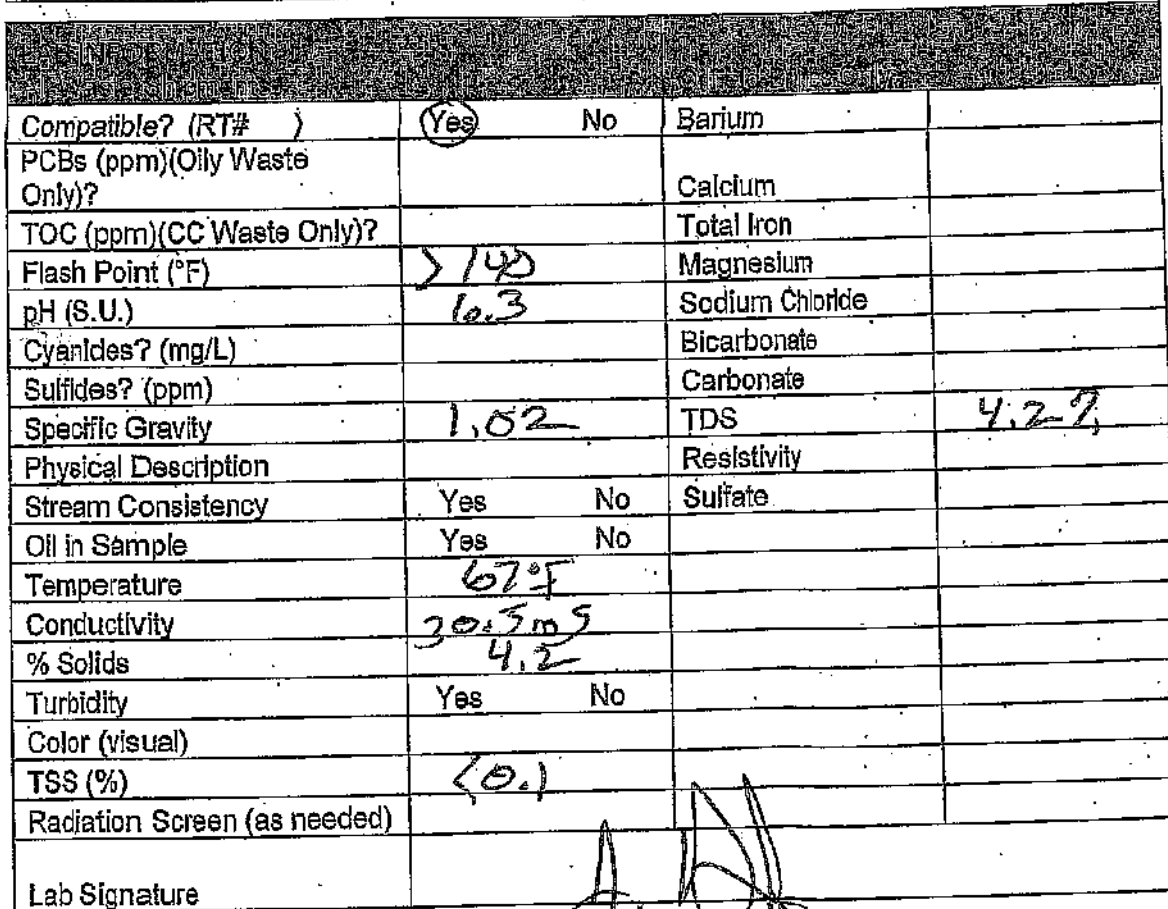 LAB INFORMATION
Compatible? (RT# ) Yes No Barium
PCBs (ppm)(Oily Waste
Only)? Calcium
TOC (ppm)(CC Waste Only)? Total Iron
Flash Point (°F) >140 Magnesium
pH (S.U.) 6.3 Sodium Chloride
Cyanides? (mg/L) Bicarbonate
Sulfides? (ppm) Carbonate
Specific Gravity 1.02 TDS 4.2%
Physical Description Resistivity
Stream Consistency Yes No Sulfate
Oil in Sample Yes No
Temperature 67°F
Conductivity 30.5 mS
% Solids 4.2
Turbidity Yes No
Color (visual)
TSS (%) <0.1
Radiation Screen (as needed)
Lab Signature